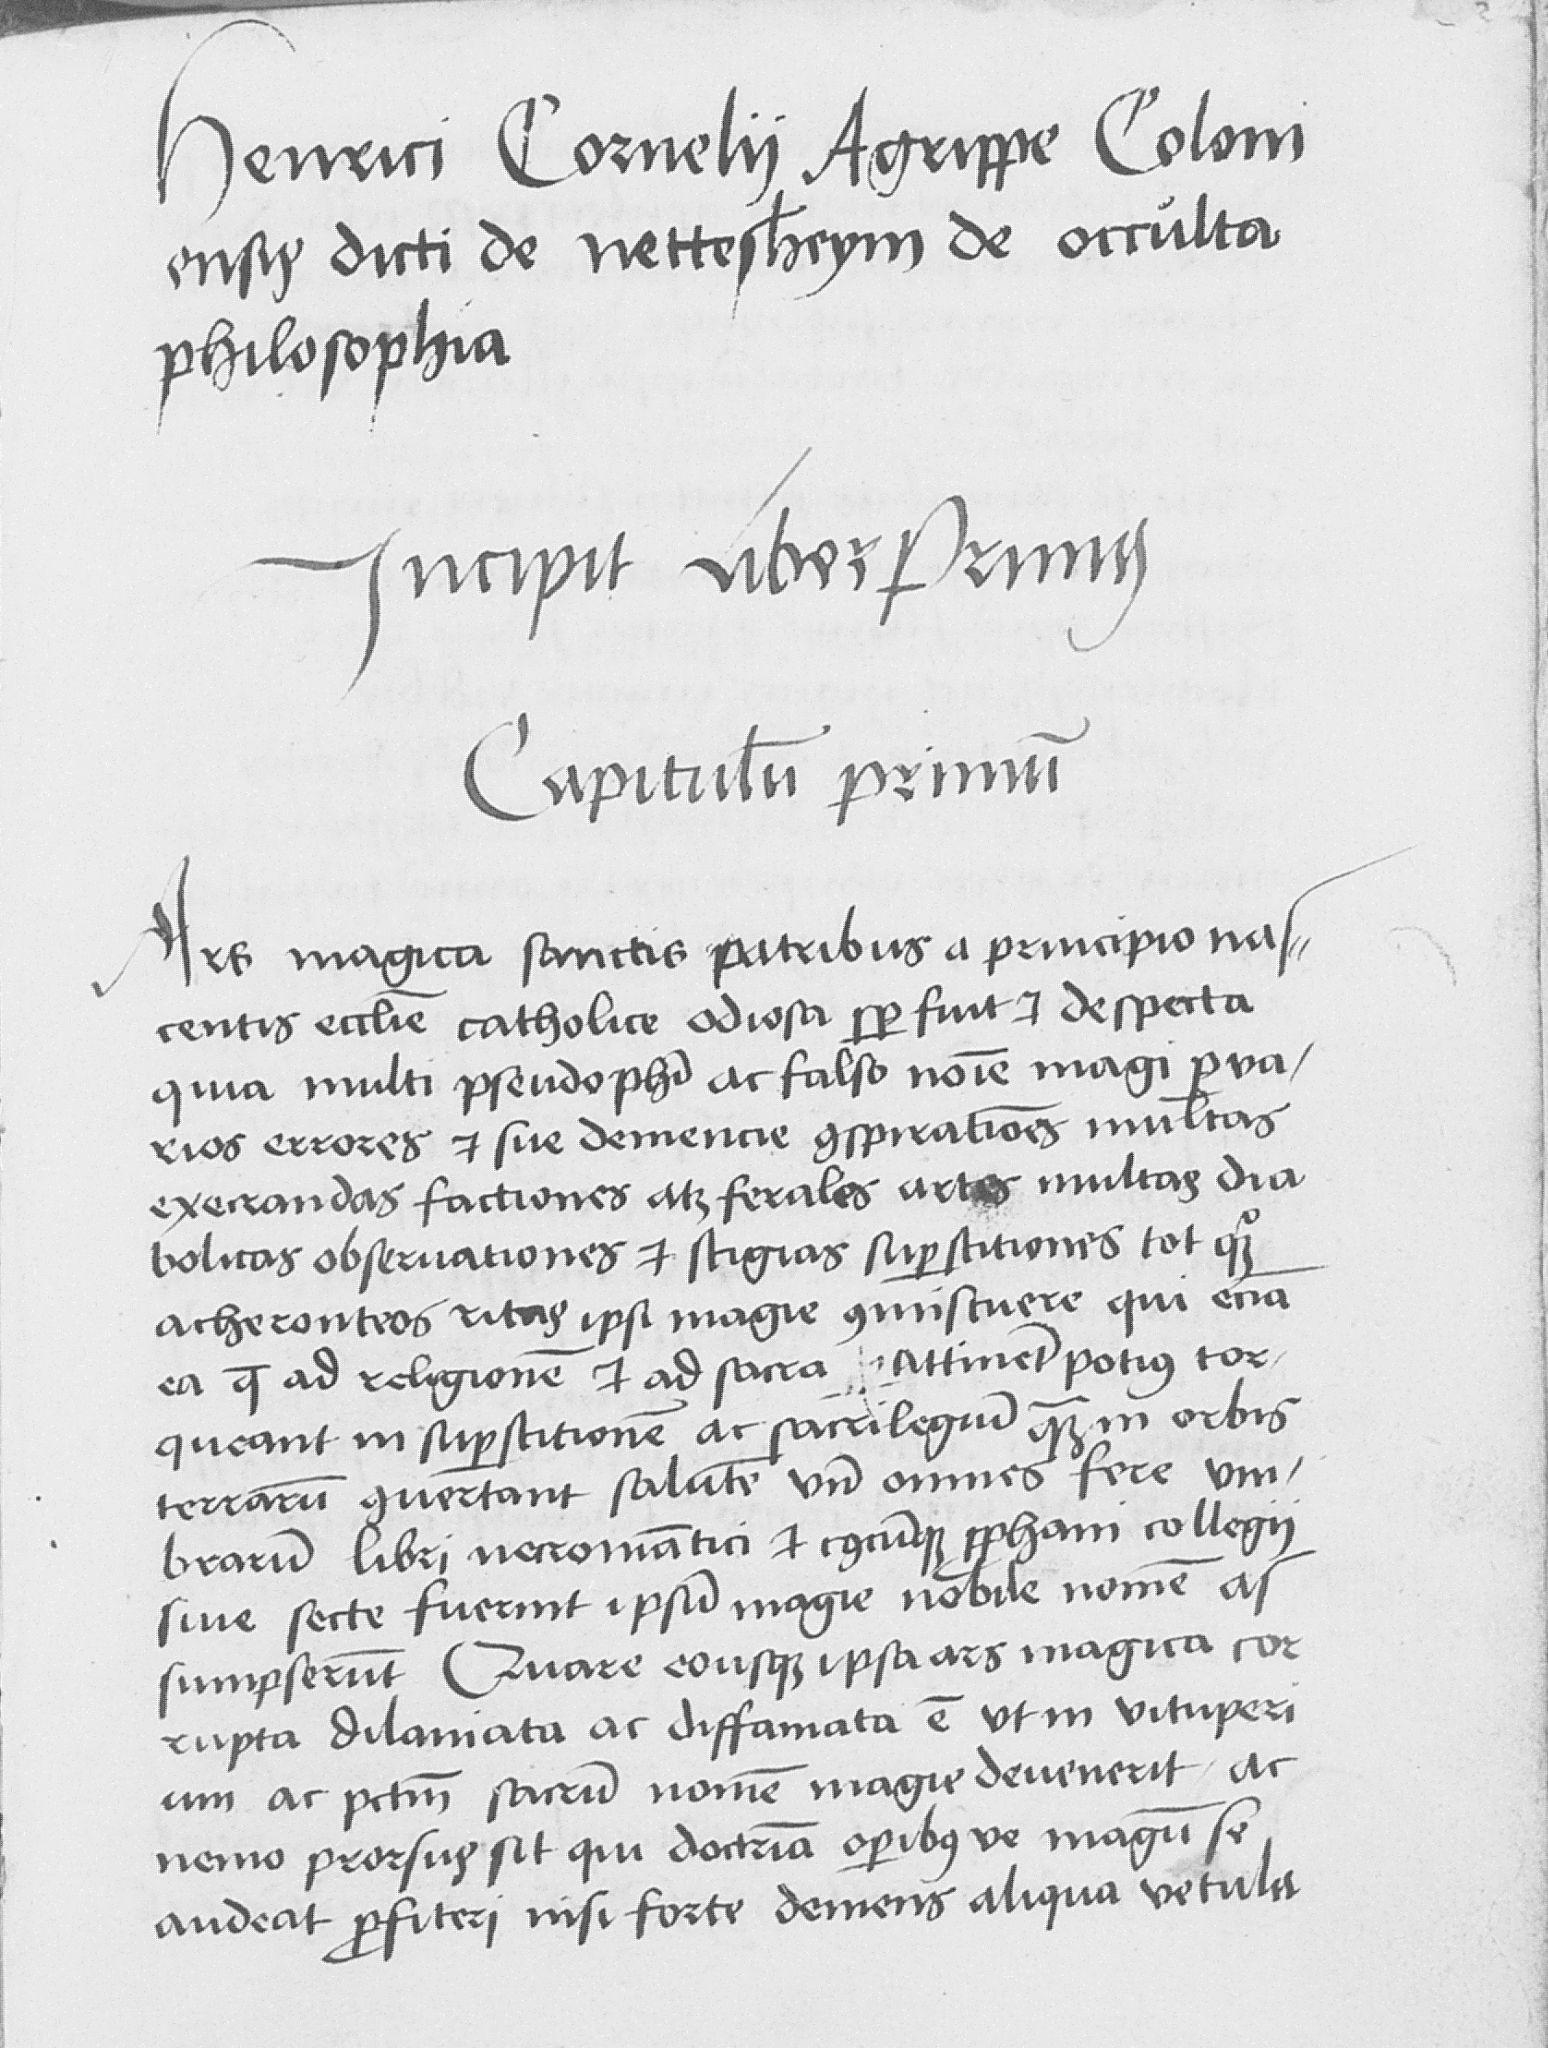 Henrici Cornelij Agrippe Coloni
ensis dicti de nettesheym de occulta
philosophia
Incipit Liber Primꝰ
Capitulū primū
Ars magica sanctis patribus a principio nas⸗
centis ecclīe catholice odiosa sꝑ fuit ⁊ despecta
quia multi pseudophī ac falso noīe magi ꝑ va/
rios errores ⁊ sue demencie ꝯspirationēs multas
execrandas factiones atqꝫ ferales artes multas dia
bolicas obseruationes ⁊ stigias suꝑstitiones tot qꝫ
acheronteos ritus ipsi magie ꝯmiscuere qui eciā
ea q̄ ad religionē ⁊ ad sacra attinēt potiꝰ tor
queant in suꝑstitionē ac sacrilegiū qꝫ in orbis
terrarū ꝯuertant salutē Vn̄ omnes fere vm/
brarū libri necromātici ⁊ cꝰcūqꝫ ꝓphani collegij
siue secte fuerint ipsū magie nobile nomē as
sumpserūt Quare eousqꝫ ipsa ars magica cor
rupta dilaniata ac diffamata ē vt in vituperi
um ac pctm̄ sacrū nomē magie deuenerit ac
nemo prorsus sit qui doctrīa oꝑibꝰ ve magū se
audeat ꝓfiteri nisi forte demens aliqua vetula